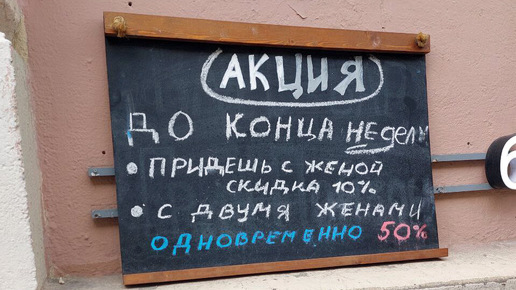 АКЦИЯ
ДО КОНЦА НЕДЕЛИ
• ПРИДЕШЬ С ЖЕНОЙ
СКИДКА 10%
• С ДВУМЯ ЖЕНАМИ
ОДНОВРЕМЕННО 50%
6